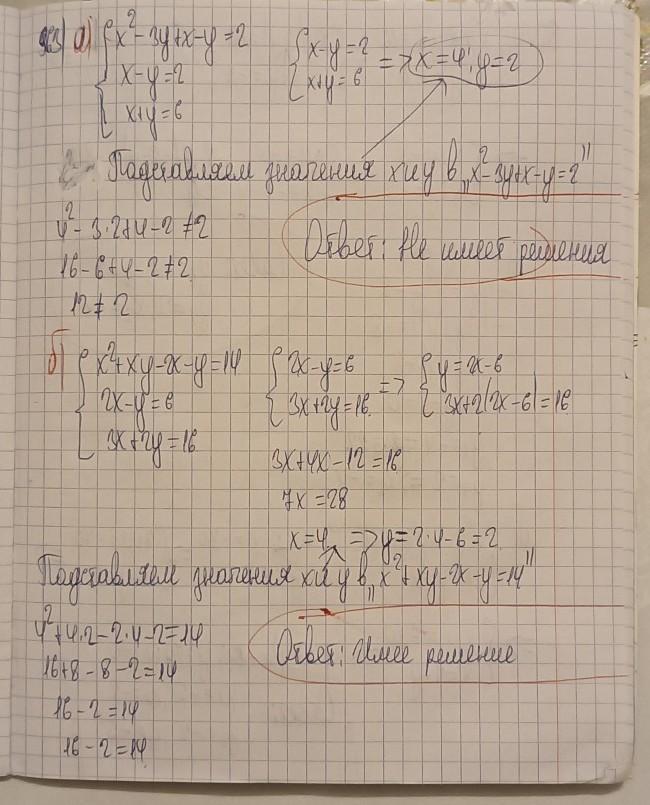 а) x²-3y+x-y=2
x-y=2
x+y=6
x-y=2
x+y=6 => x=4; y=2
Подставляем значения x и y в „x²-3y+x-y=2"
4²-3·2+4-2≠2
16-6+4-2≠2
12≠2
Ответ: Не имеет решения
б) x²+xy-2x-y=14
2x-y=6
3x+2y=16
2x-y=6
3x+2y=16 =>
y=2x-6
3x+2(2x-6)=16
3x+4x-12=16
7x=28
x=4 => y=2·4-6=2
Подставляем значения x и y в „x²+xy-2x-y=14"
4²+4·2-2·4-2=14
16+8-8-2=14
16-2=14
16-2=14
Ответ: Имее решение